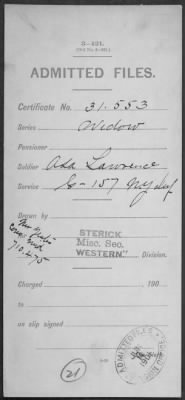 3-421.
ADMITTED FILES.
Certificate No. 31.553
Series Widow
Pensioner
Soldier Asa Lawrence
Service G-157 NY Inf
Drawn by
STERICK
Misc. Sec.
WESTERN" Division.
710.475
Charged 190
to
on slip signed
ADMITTED FILES
21